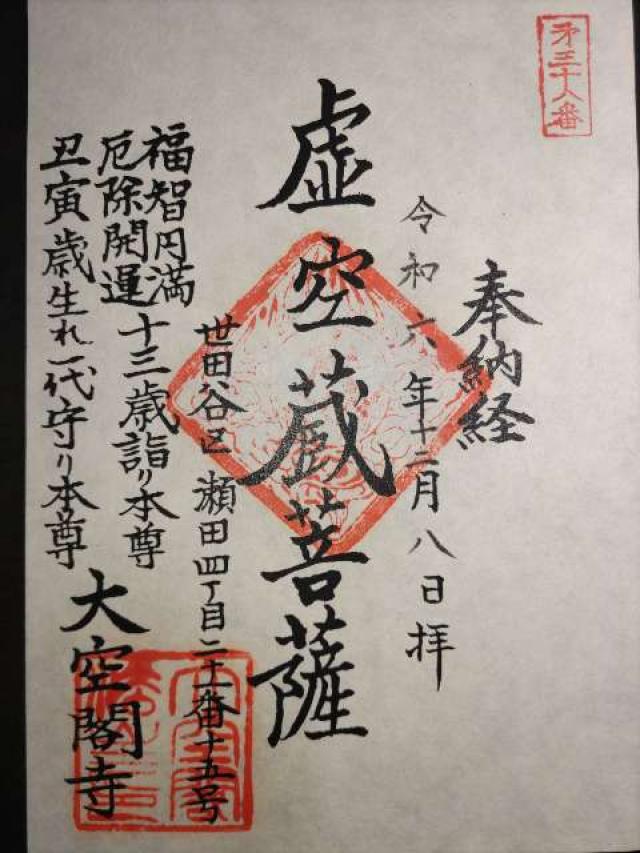 第三十八番
奉納経
令和六年十二月八日拝
虚空蔵菩薩
世田谷区瀬田四丁目二十一番十五号
福智円満
厄除開運十三歳詣り本尊
丑寅歳生れ一代守り本尊
大空閣寺